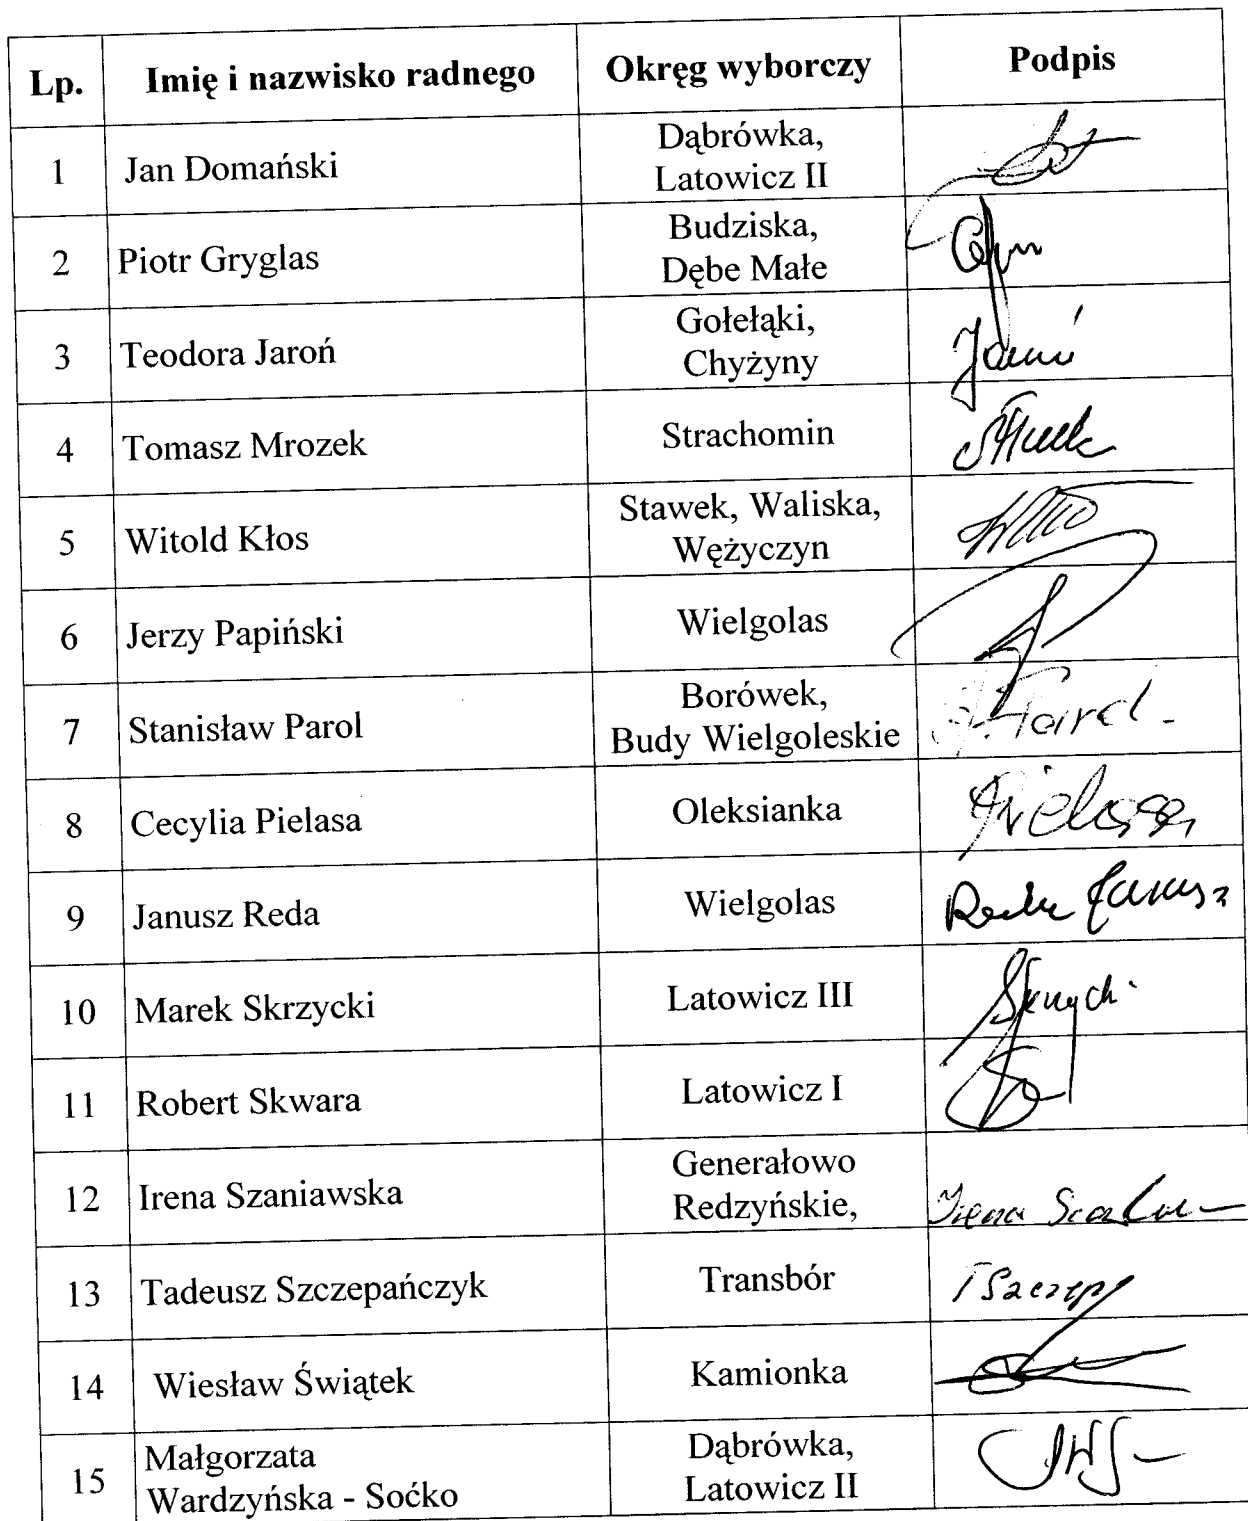 Lp. Imię i nazwisko radnego Okręg wyborczy Podpis
1 Jan Domański Dąbrówka,
Latowicz II
2 Piotr Gryglas Budziska,
Dębe Małe
3 Teodora Jaroń Gołełąki,
Chyżyny
4 Tomasz Mrozek Strachomin
5 Witold Kłos Stawek, Waliska,
Wężyczyn
6 Jerzy Papiński Wielgolas
7 Stanisław Parol Borówek,
Budy Wielgoleskie
8 Cecylia Pielasa Oleksianka Pielasa
9 Janusz Reda Wielgolas Reda Janusz
10 Marek Skrzycki Latowicz III
11 Robert Skwara Latowicz I
12 Irena Szaniawska Generałowo
Redzyńskie, Irena
13 Tadeusz Szczepańczyk Transbór
14 Wiesław Świątek Kamionka
15 Małgorzata
Wardzyńska - Soćko Dąbrówka,
Latowicz II